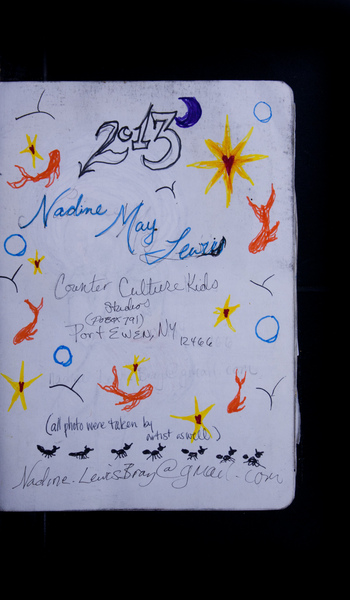 2013
Nadine May
Lewis
Counter Culture Kids
Studios
(POBOX 791)
Port EWEN, NY
12466
(all photo were taken by
artist as well)
Nadine.LewisBray@gmail.com